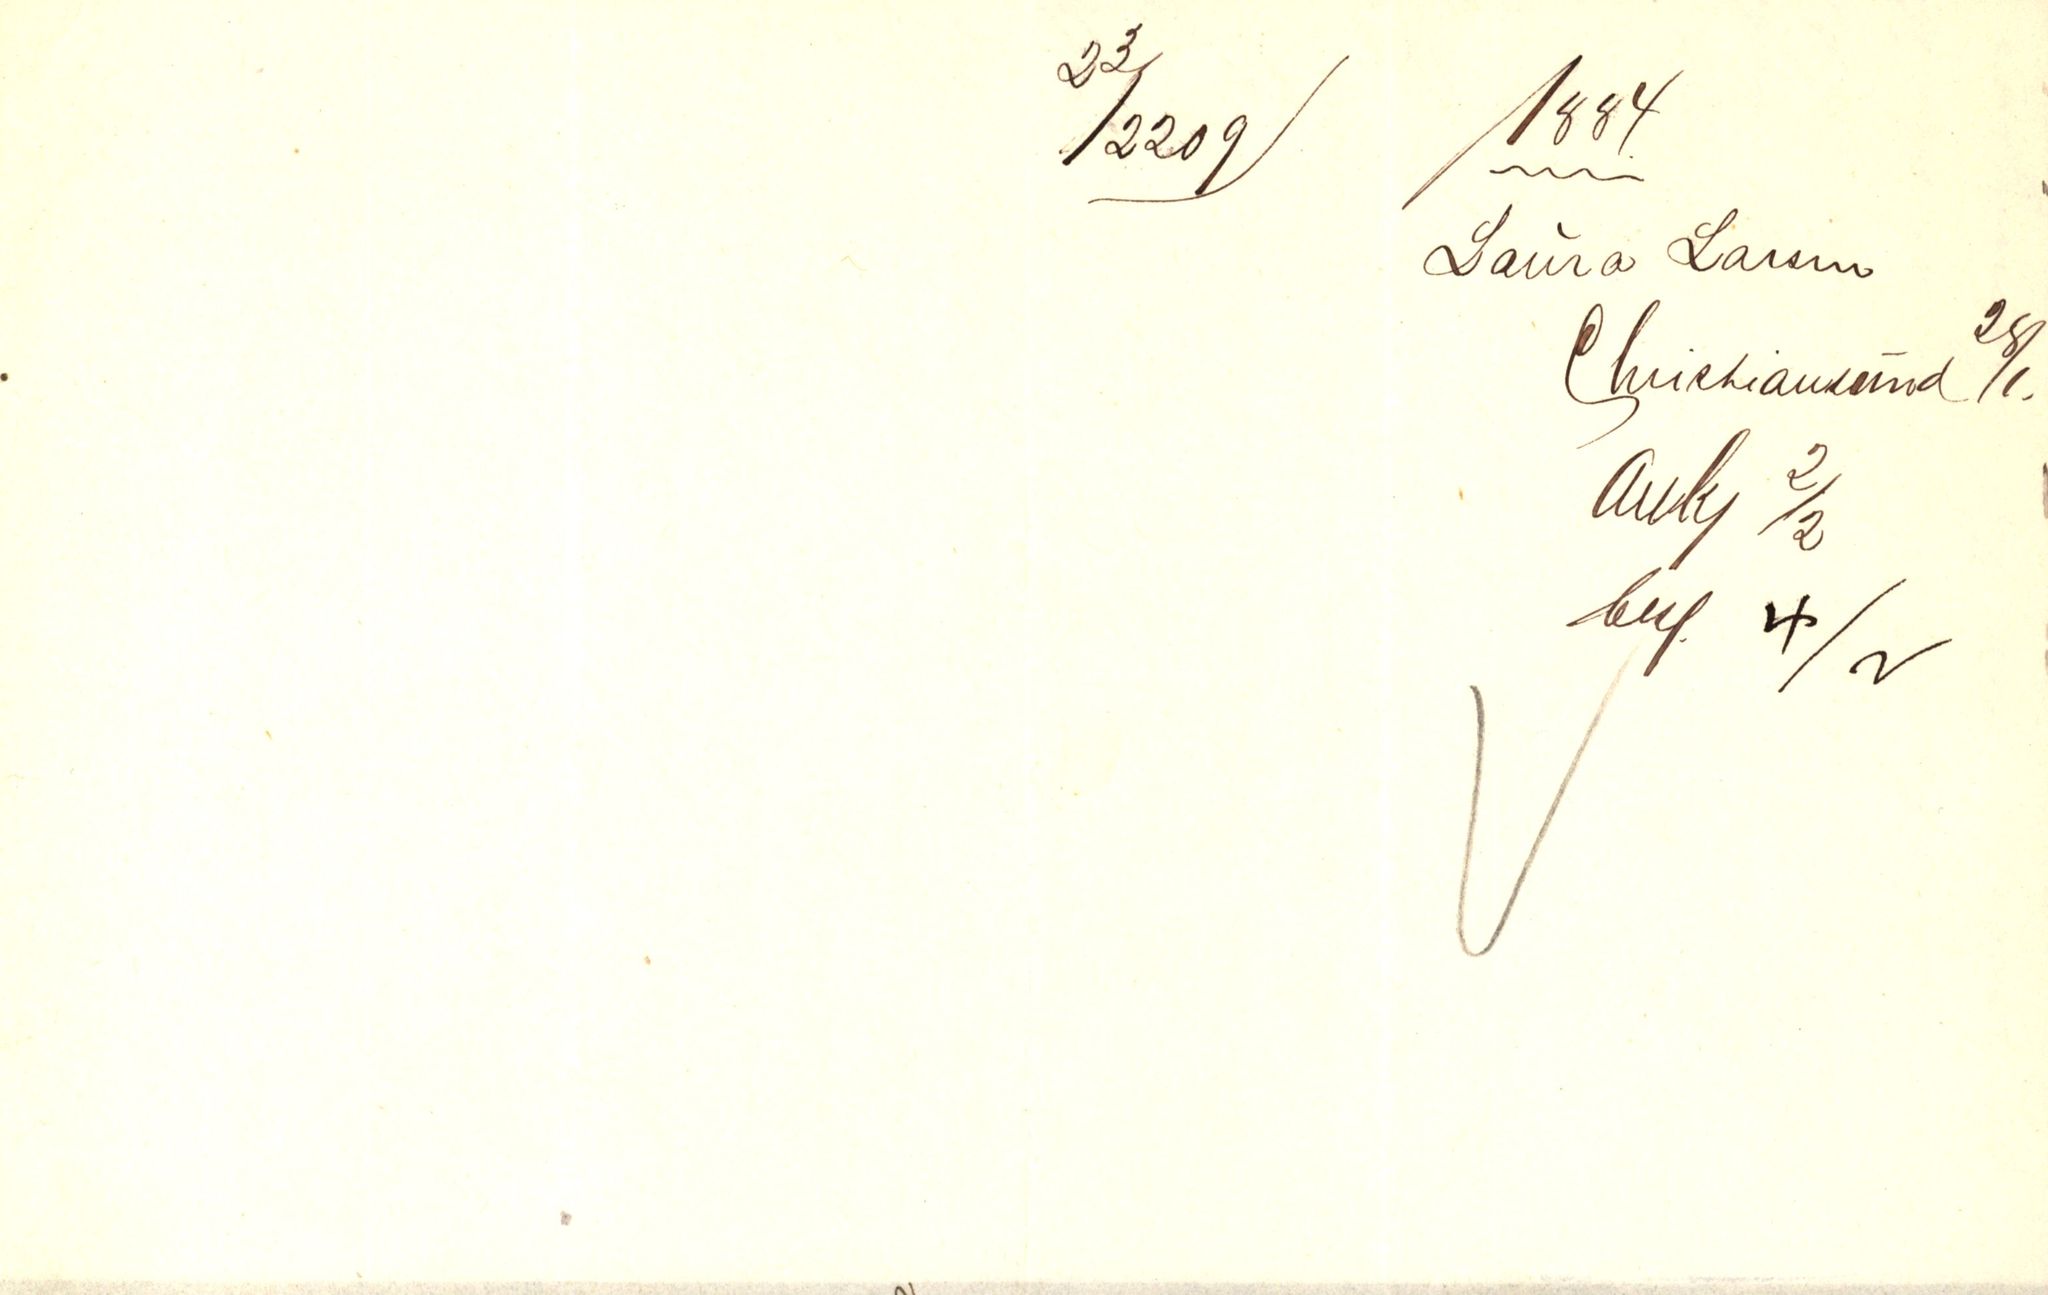 23/2209/
1884
Laura Larsen
Christiansund 28/1.
Ank 2/2
besv. 4/2